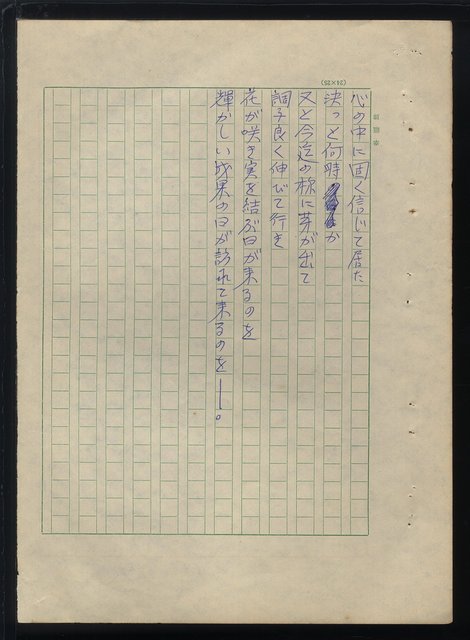 (24×25)
心の中に固く信じて居た
決っと何時か
又と今迄の様に芽が出て
調子良く伸びて行き
花が咲き実を結ぶ日が来るのを
輝かしい成果の日が訪れて来るのを―。